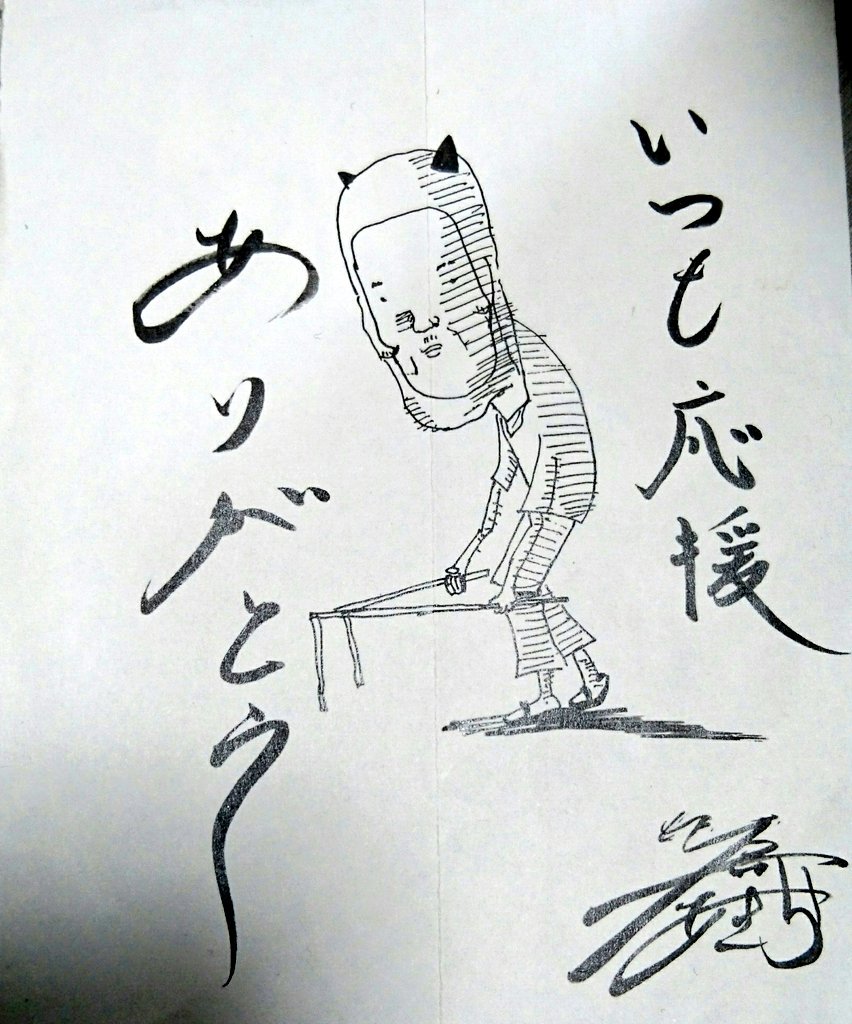 いつも応援
ありがとう